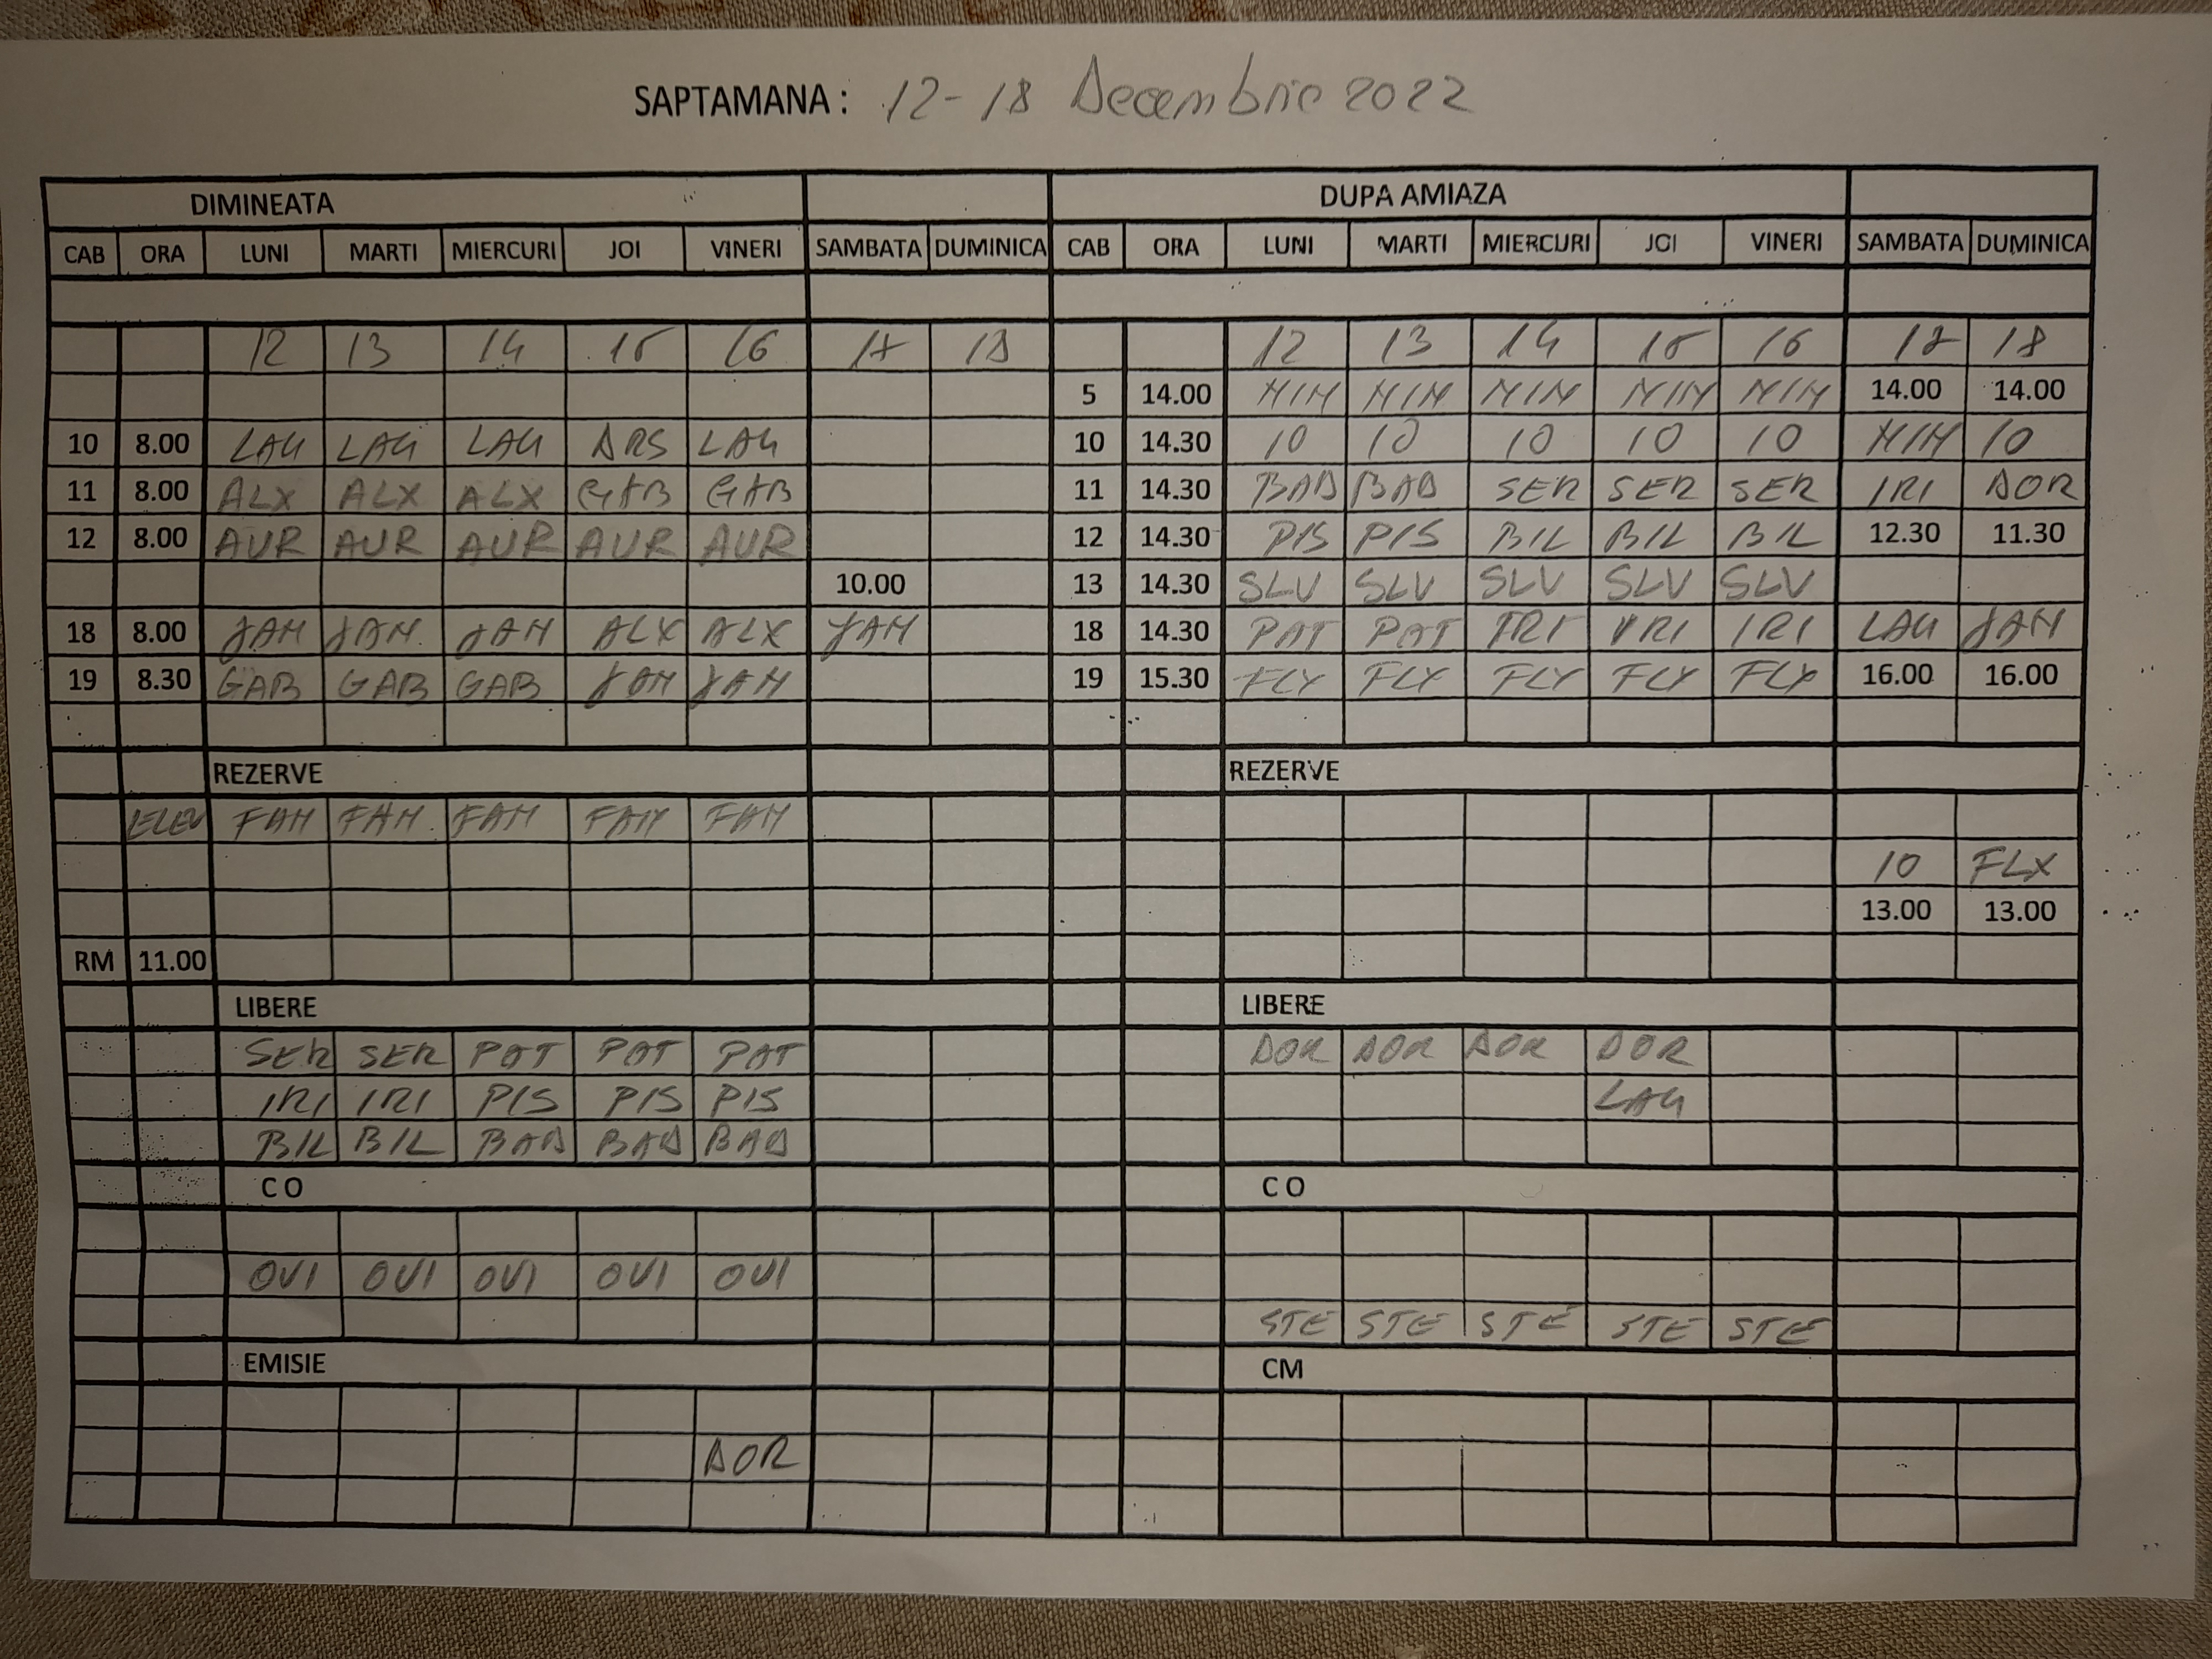 SAPTAMANA: 12-18 Decembrie 2022
DIMINEATA DUPA AMIAZA
CAB ORA LUNI MARTI MIERCURI JOI VINERI SAMBATA DUMINICA CAB ORA LUNI MARTI MIERCURI JOI VINERI SAMBATA DUMINICA
12 13 14 15 16 17 18 12 13 14 15 16 17 18
5 14.00 MIM MIM MIM MIM MIM 14.00 14.00
10 8.00 LAU LAU LAU DRS LAU 10 14.30 10 10 10 10 10 MIM 10
11 8.00 ALX ALX ALX GAB GAB 11 14.30 BAD BAD SER SER SER IRI DOR
12 8.00 AUR AUR AUR AUR AUR 12 14.30 PIS PIS BIL BIL BIL 12.30 11.30
10.00 13 14.30 SLV SLV SLV SLV SLV
18 8.00 JAM JAM JAM ALX ALX JAM 18 14.30 POT POT IRI IRI IRI LAU JAM
19 8.30 GAB GAB GAB JAM JAM 19 15.30 FLX FLX FLX FLX FLX 16.00 16.00
REZERVE REZERVE
ELEV FAM FAM FAM FAM FAM
10 FLX
13.00 13.00
RM 11.00
LIBERE LIBERE
SER SER POT POT POT DOR DOR DOR DOR
IRI IRI PIS PIS PIS LAU
BIL BIL BAD BAD BAD
C O C O
OVI OVI OVI OVI OVI
STE STE STE STE STE
EMISIE CM
DOR